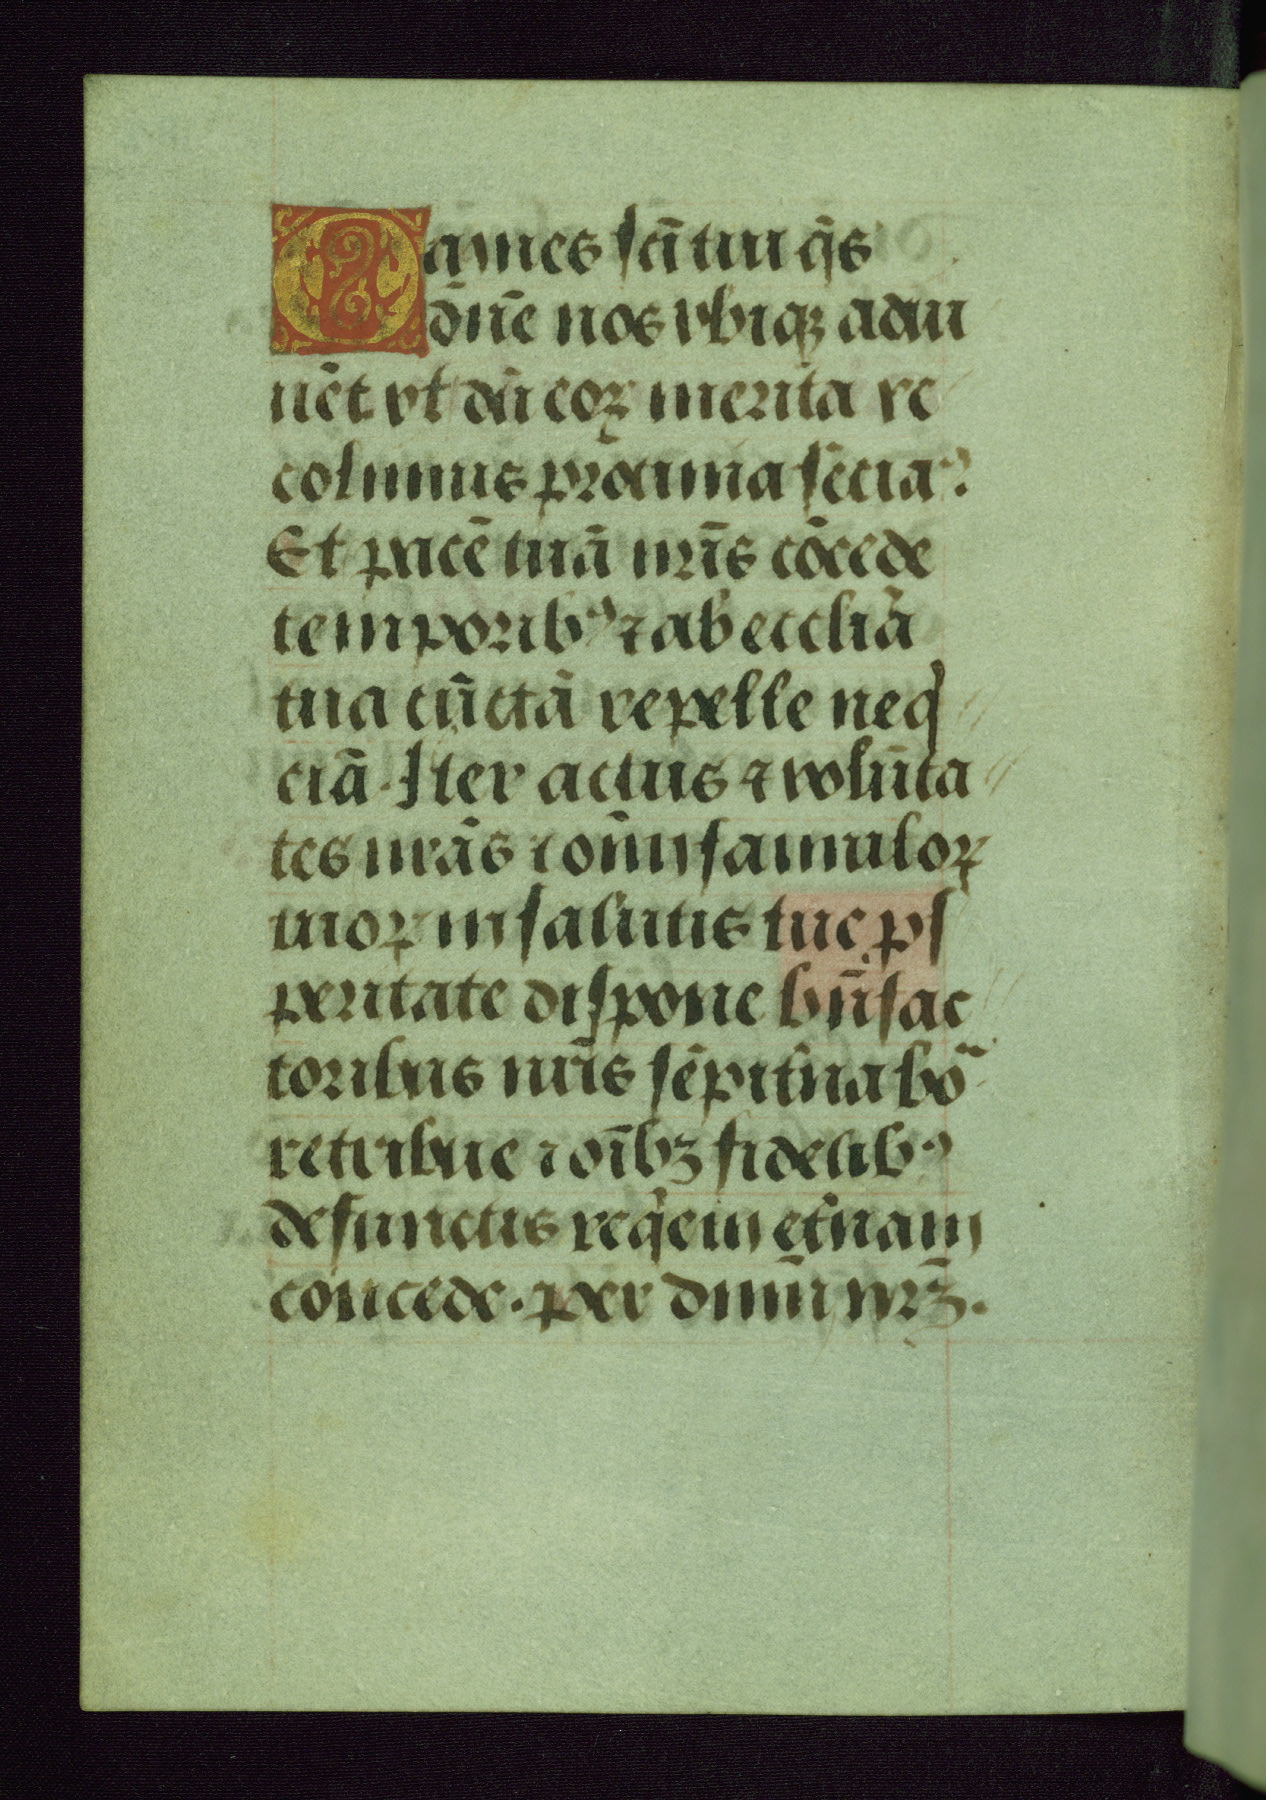 Oām̄es sc̄i tui q̄s
dn̄e nos vbiqꝫ adiu
uēt vt dū eoꝝ merita re
colimus pr̄ocinia sēcia⁹.
Et pacē tuā nr̄is cōcede
temporib⁹ ⁊ ab ecclīa
tua cūctā repelle neq
ciā. Iter actus ⁊ volūta
tes nrās ⁊ om̄i famuloꝝ
tuoꝝ in salutis tue ꝓs
peritate dispone bn̄fac
toribus nr̄is sēpit̄na bōa
retribue ⁊ oībꝫ fidelib⁹
defunctis reqͥem et̄nam
concede. per dnm̄ nrꝫ̄.